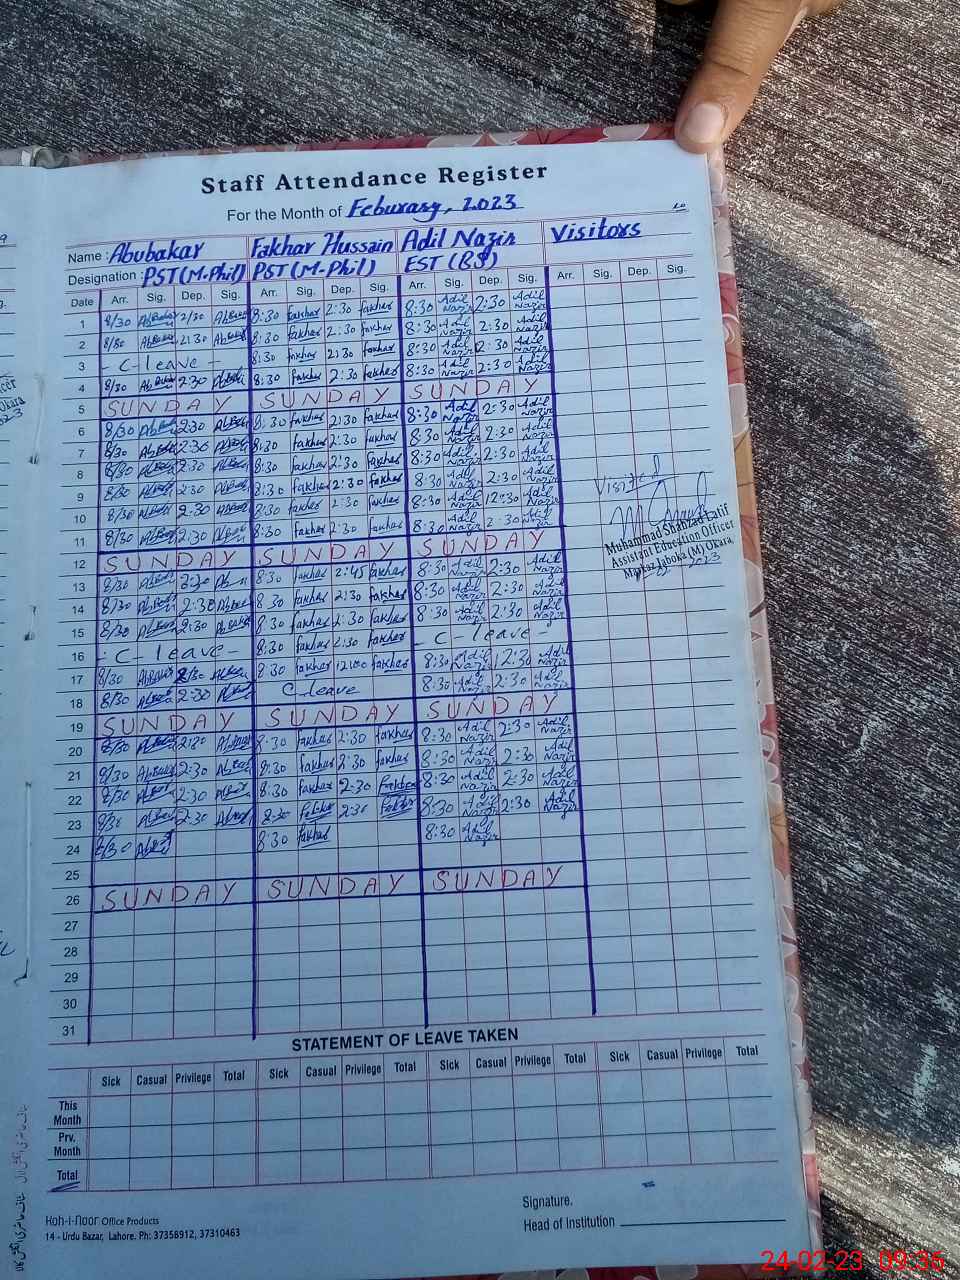 Staff Attendance Register
For the Month of Feburary, 2023
Name : Abubakar Fakhar Hussain Adil Nazir Visitors
Designation : PST (M-Phil) PST (M-Phil) EST (BS)
Date Arr. Sig. Dep. Sig. Arr. Sig. Dep. Sig. Arr. Sig. Dep. Sig. Arr. Sig. Dep. Sig.
1 8/30 2/30 8:30 fakhar 2:30 fakhar 8:30 Adil Nazir 2:30 Adil Nazir
2 8/30 2:30 8:30 fakhar 2:30 fakhar 8:30 Adil Nazir 2:30 Adil Nazir
3 - C - leave - 8:30 fakhar 2:30 fakhar 8:30 Adil Nazir 2:30 Adil Nazir
4 8/30 2:30 8:30 fakhar 2:30 fakhar 8:30 Adil Nazir 2:30 Adil Nazir
5 SUNDAY SUNDAY SUNDAY
6 8/30 2:30 8:30 fakhar 2:30 fakhar 8:30 Adil Nazir 2:30 Adil Nazir
7 8/30 2:30 8:30 fakhar 2:30 fakhar 8:30 Adil Nazir 2:30 Adil Nazir
8 8/30 2:30 8:30 fakhar 2:30 fakhar 8:30 Adil Nazir 2:30 Adil Nazir
9 8/30 2:30 8:30 fakhar 2:30 fakhar 8:30 Adil Nazir 2:30 Adil Nazir
10 8/30 2:30 8:30 fakhar 2:30 fakhar 8:30 Adil Nazir 12:30 Adil Nazir
11 8/30 2:30 8:30 fakhar 2:30 fakhar 8:30 Adil Nazir 2:30 Adil Nazir
12 SUNDAY SUNDAY SUNDAY
Visited
Muhammad Shahzad Latif
Assistant Education Officer
Markaz Jaboka (M) Okara.
2023
13 8/30 2:30 8:30 fakhar 2:45 fakhar 8:30 Adil Nazir 2:30 Adil Nazir
14 8/30 2:30 8:30 fakhar 2:30 fakhar 8:30 Adil Nazir 2:30 Adil Nazir
15 8/30 2:30 8:30 fakhar 2:30 fakhar 8:30 Adil Nazir 2:30 Adil Nazir
16 - C - leave - 8:30 fakhar 2:30 fakhar - C - leave -
17 8/30 8:30 fakhar 12:00 fakhar 8:30 Adil Nazir 12:30 Adil Nazir
18 8/30 2:30 C leave 8:30 Adil Nazir 2:30 Adil Nazir
19 SUNDAY SUNDAY SUNDAY
20 8/30 2:30 8:30 fakhar 2:30 fakhar 8:30 Adil Nazir 2:30 Adil Nazir
21 8/30 2:30 8:30 fakhar 2:30 fakhar 8:30 Adil Nazir 2:30 Adil Nazir
22 8/30 2:30 8:30 fakhar 2:30 8:30 Adil Nazir 2:30 Adil Nazir
23 8/30 2:30 8:30 2:30 8:30 Adil Nazir 2:30 Adil Nazir
24 8/30 8:30 fakhar 8:30 Adil Nazir
25
26 SUNDAY SUNDAY SUNDAY
27
28
29
30
31
STATEMENT OF LEAVE TAKEN
Sick Casual Privilege Total Sick Casual Privilege Total Sick Casual Privilege Total Sick Casual Privilege Total
This Month
Prv. Month
Total
Koh-i-Noor Office Products
14 - Urdu Bazar, Lahore. Ph: 37358912, 37310463
Signature.
Head of Institution
24-02-23 09:36